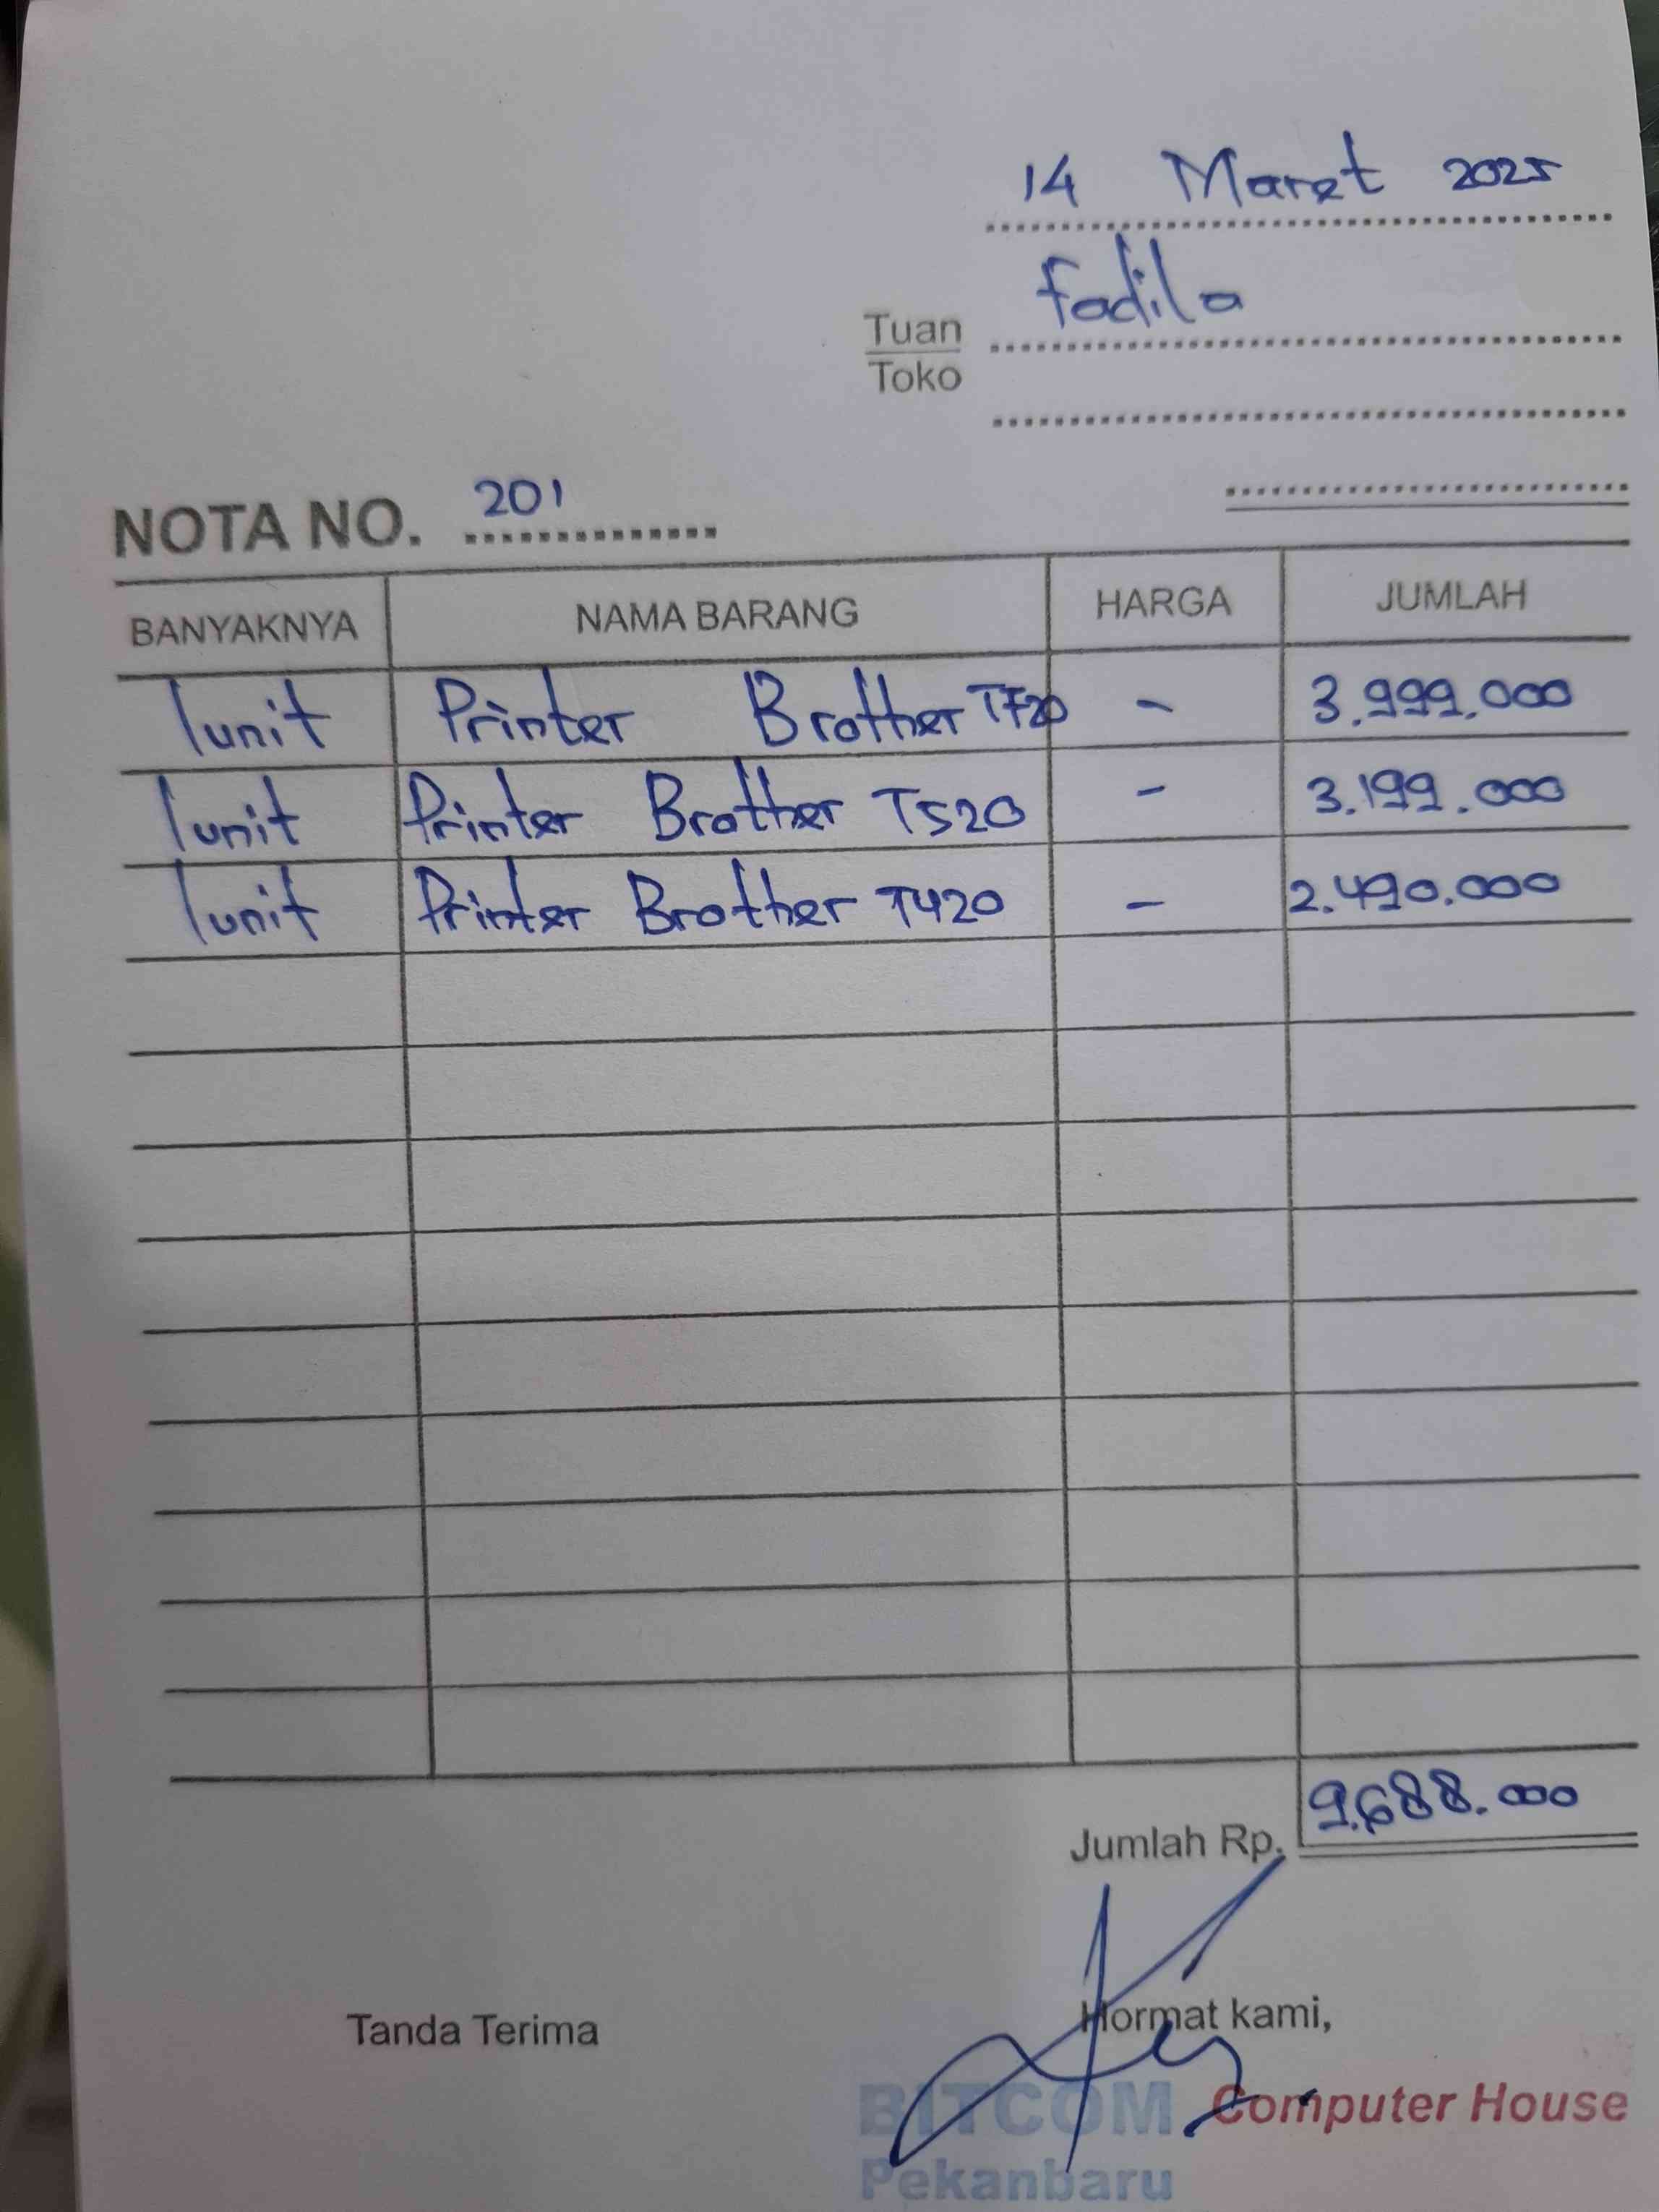 14 Maret 2025
Fadila
Tuan
Toko
NOTA NO. 201
BANYAKNYA NAMA BARANG HARGA JUMLAH
1 unit Printer Brother T720 - 3.999.000
1 unit Printer Brother T520 - 3.199.000
1 unit Printer Brother T420 - 2.490.000
Jumlah Rp. 9.688.000
Tanda Terima Hormat kami,
BITCOM Computer House
Pekanbaru